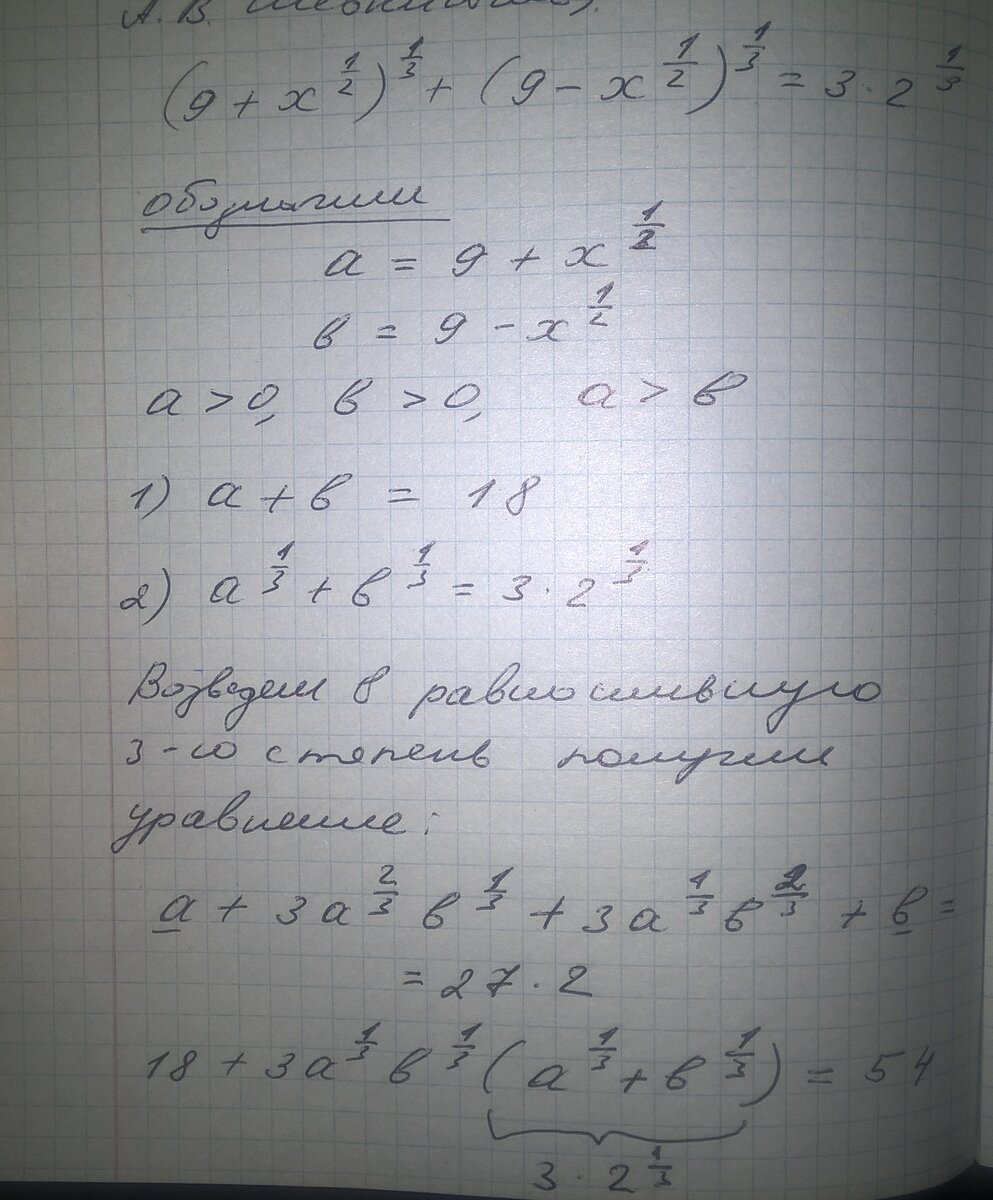 А. В.
(9 + x^{1/2})^{1/3} + (9 − x^{1/2})^{1/3} = 3 · 2^{1/3}
обозначим
a = 9 + x^{1/2}
в = 9 − x^{1/2}
a > 0, в > 0, a > в
1) a + в = 18
2) a^{1/3} + в^{1/3} = 3 · 2^{1/3}
Возведем в равносильную
3-ю степень получим
уравнение:
a + 3a^{2/3} в^{1/3} + 3a^{1/3} в^{2/3} + в =
= 27 · 2
18 + 3a^{1/3} в^{1/3} (a^{1/3} + в^{1/3}) = 54
3 · 2^{1/3}